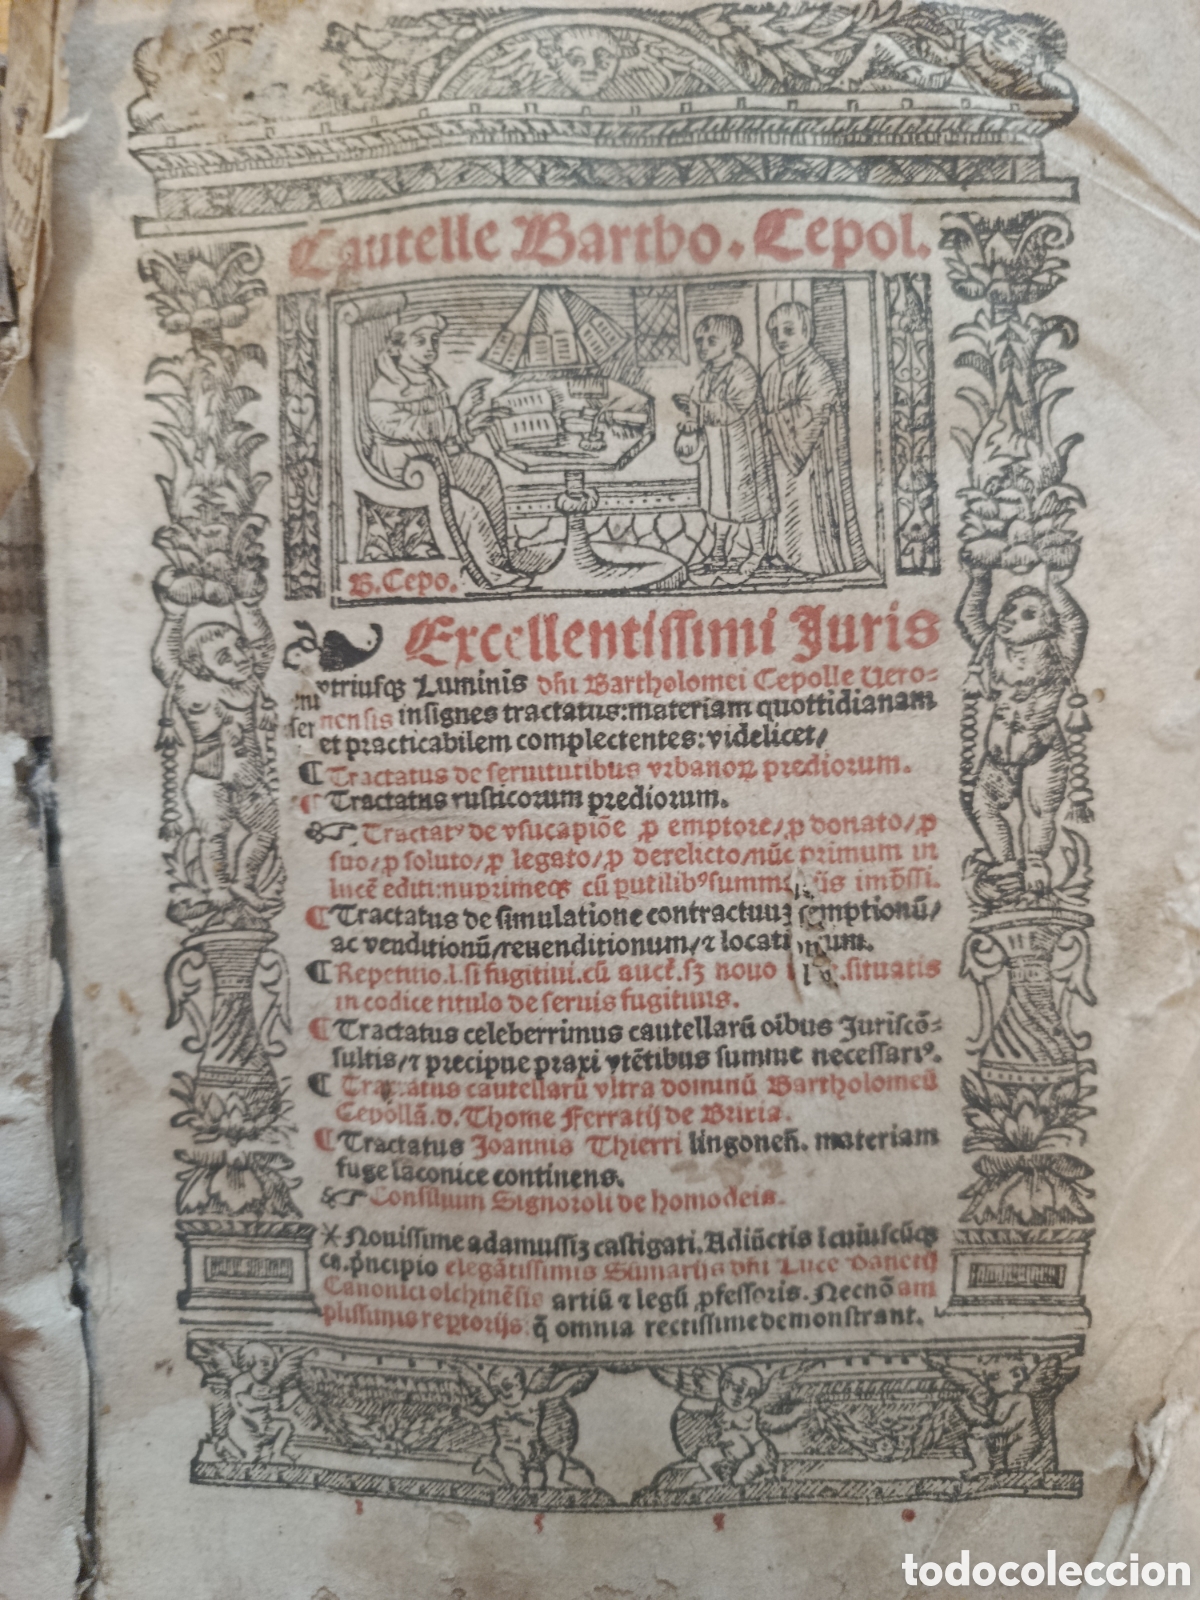 Cautelle Bartho. Cepol.
B. Cepo.
Excellentissimi Juris
vtriusqꝫ Luminis dñi Bartholomei Cepolle Uero-
nensis insignes tractatus: materiam quottidianam
et practicabilem complectentes: videlicet/
¶ Tractatus de seruitutibus vrbanoꝝ prediorum.
¶ Tractatus rusticorum prediorum.
☞ Tractatꝰ de vsucapiõe ꝓ emptore/ ꝓ donato/ ꝓ
suo/ ꝓ soluto/ ꝓ legato/ ꝓ derelicto/ nũc primum in
lucẽ editi: nuprimeqꝫ cũ putilibꝰ summ
¶ Tractatus de simulatione contractuuꝫ emptionũ/
ac venditionũ/ reuenditionum/ ⁊ locati um.
¶ Repetitio. l. si fugitiui. cũ auct. sꝫ nouo situatis
in codice titulo de seruis fugitiuis.
¶ Tractatus celeberrimus cautellarũ oibus Juriscõ-
sultis/ ⁊ precipue praxi vtẽtibus summe necessariꝰ.
¶ Tractatus cautellarũ vltra dominũ Bartholomeũ
Cepollã. d. Thome Ferratij de Brixia.
¶ Tractatus Joannis Thierri lingoneñ. materiam
fuge laconice continens.
☞ Consilium Signoroli de homodeis.
Nouissime adamussiꝫ castigati. Adiũctis ĩ cuiuscũqꝫ
pꝛncipio elegãtissimis Sũmarijs dñi Luce Sanctij
Canonici olchinẽsis artiũ ⁊ legũ ꝓfessoris. Necnõ am
plissimis reꝑtorijs: q̃ omnia rectissime demonstrant.
todocoleccion